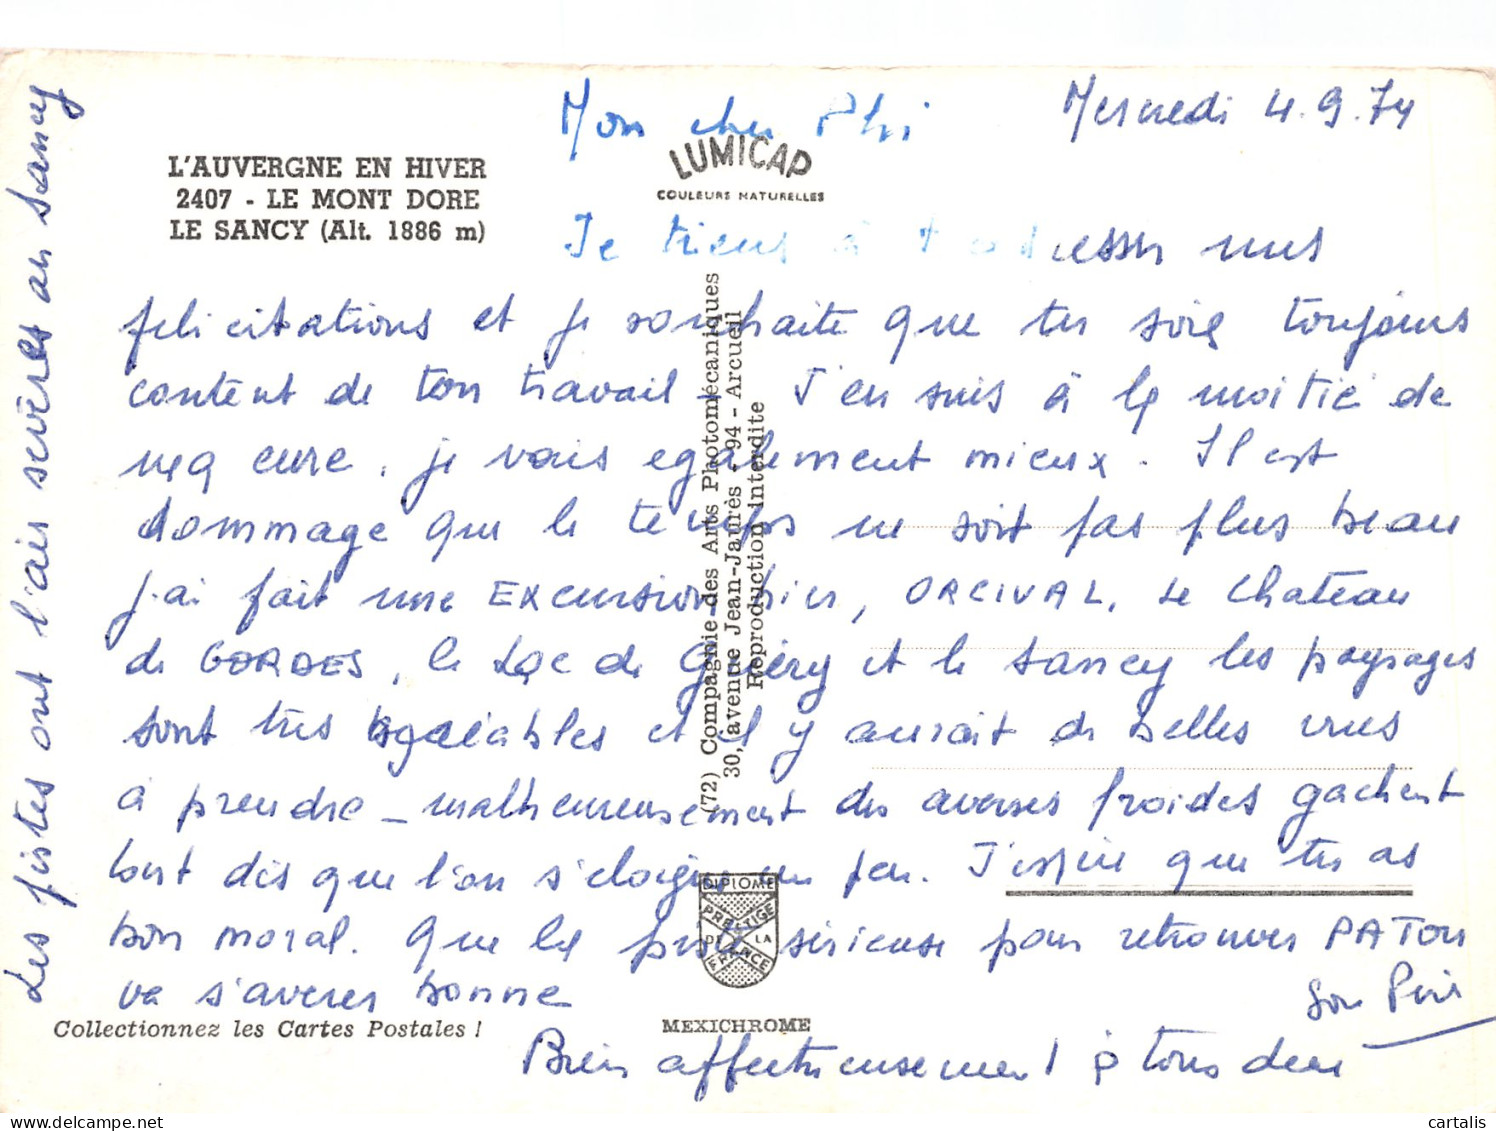 Mercredi 4.9.74
Mon cher Phi
L'AUVERGNE EN HIVER
2407 - LE MONT DORE
LE SANCY (Alt. 1886 m)
LUMICAP
COULEURS NATURELLES
Je tiens à t'adresser mes
felicitations et je souhaite que tu sois toujours
content de ton travail - J'en suis à la moitié de
ma cure. je vais egalement mieux. Il est
dommage que le temps ne soit pas plus beau
j'ai fait une EXCURSION hier, ORCIVAL, Le Chateau
de CORDES, le Lac de Guéry et le Sancy les paysages
sont très agréables et il y aurait de belles vues
à prendre - malheureusement des averses froides gachent
tout dès que l'on s'eloigne un peu. J'espère que tu as
bon moral. Que la piste sérieuse pour retrouver PATOU
va s'averer bonne
Ton Père
Bien affectueusement à tous deux
Les pistes ont l'air sevères au Sancy
(72) Compagnie des Arts Photomécaniques
30, avenue Jean-Jaurès - 94 - Arcueil
Reproduction interdite
DIPLOME
PRESTIGE
DE LA
FRANCE
Collectionnez les Cartes Postales !
MEXICHROME
cartalis